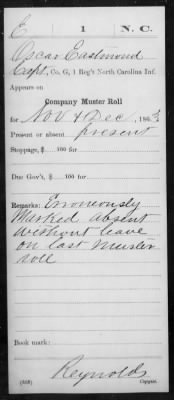 E | 1 | N. C.
Oscar Eastmond
Capt, Co. G, 1 Reg't North Carolina Inf.
Appears on
Company Muster Roll
for Nov & Dec, 186
Present or absent present
Stoppage, $ 100 for
Due Gov't, $ 100 for
Remarks: Erroneously
Marked absent
without leave
on last muster
roll
Book mark:
Reynolds
(858) Copyist.